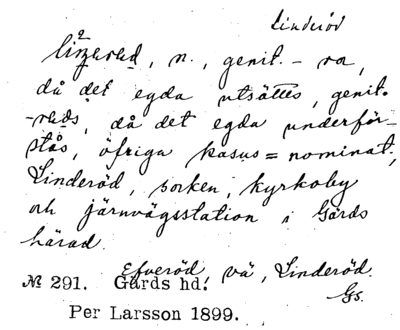 Linderöd
n., genit. - ra,
då det egda utsättes, genit.
-reds, då det egda underför-
stås, öfriga kasus = nominat.,
Linderöd, socken, kyrkoby
och järnvägsstation i Gärds
härad.
Efveröd, vä, Linderöd.
№ 291. Gärds hd.
Gs.
Per Larsson 1899.